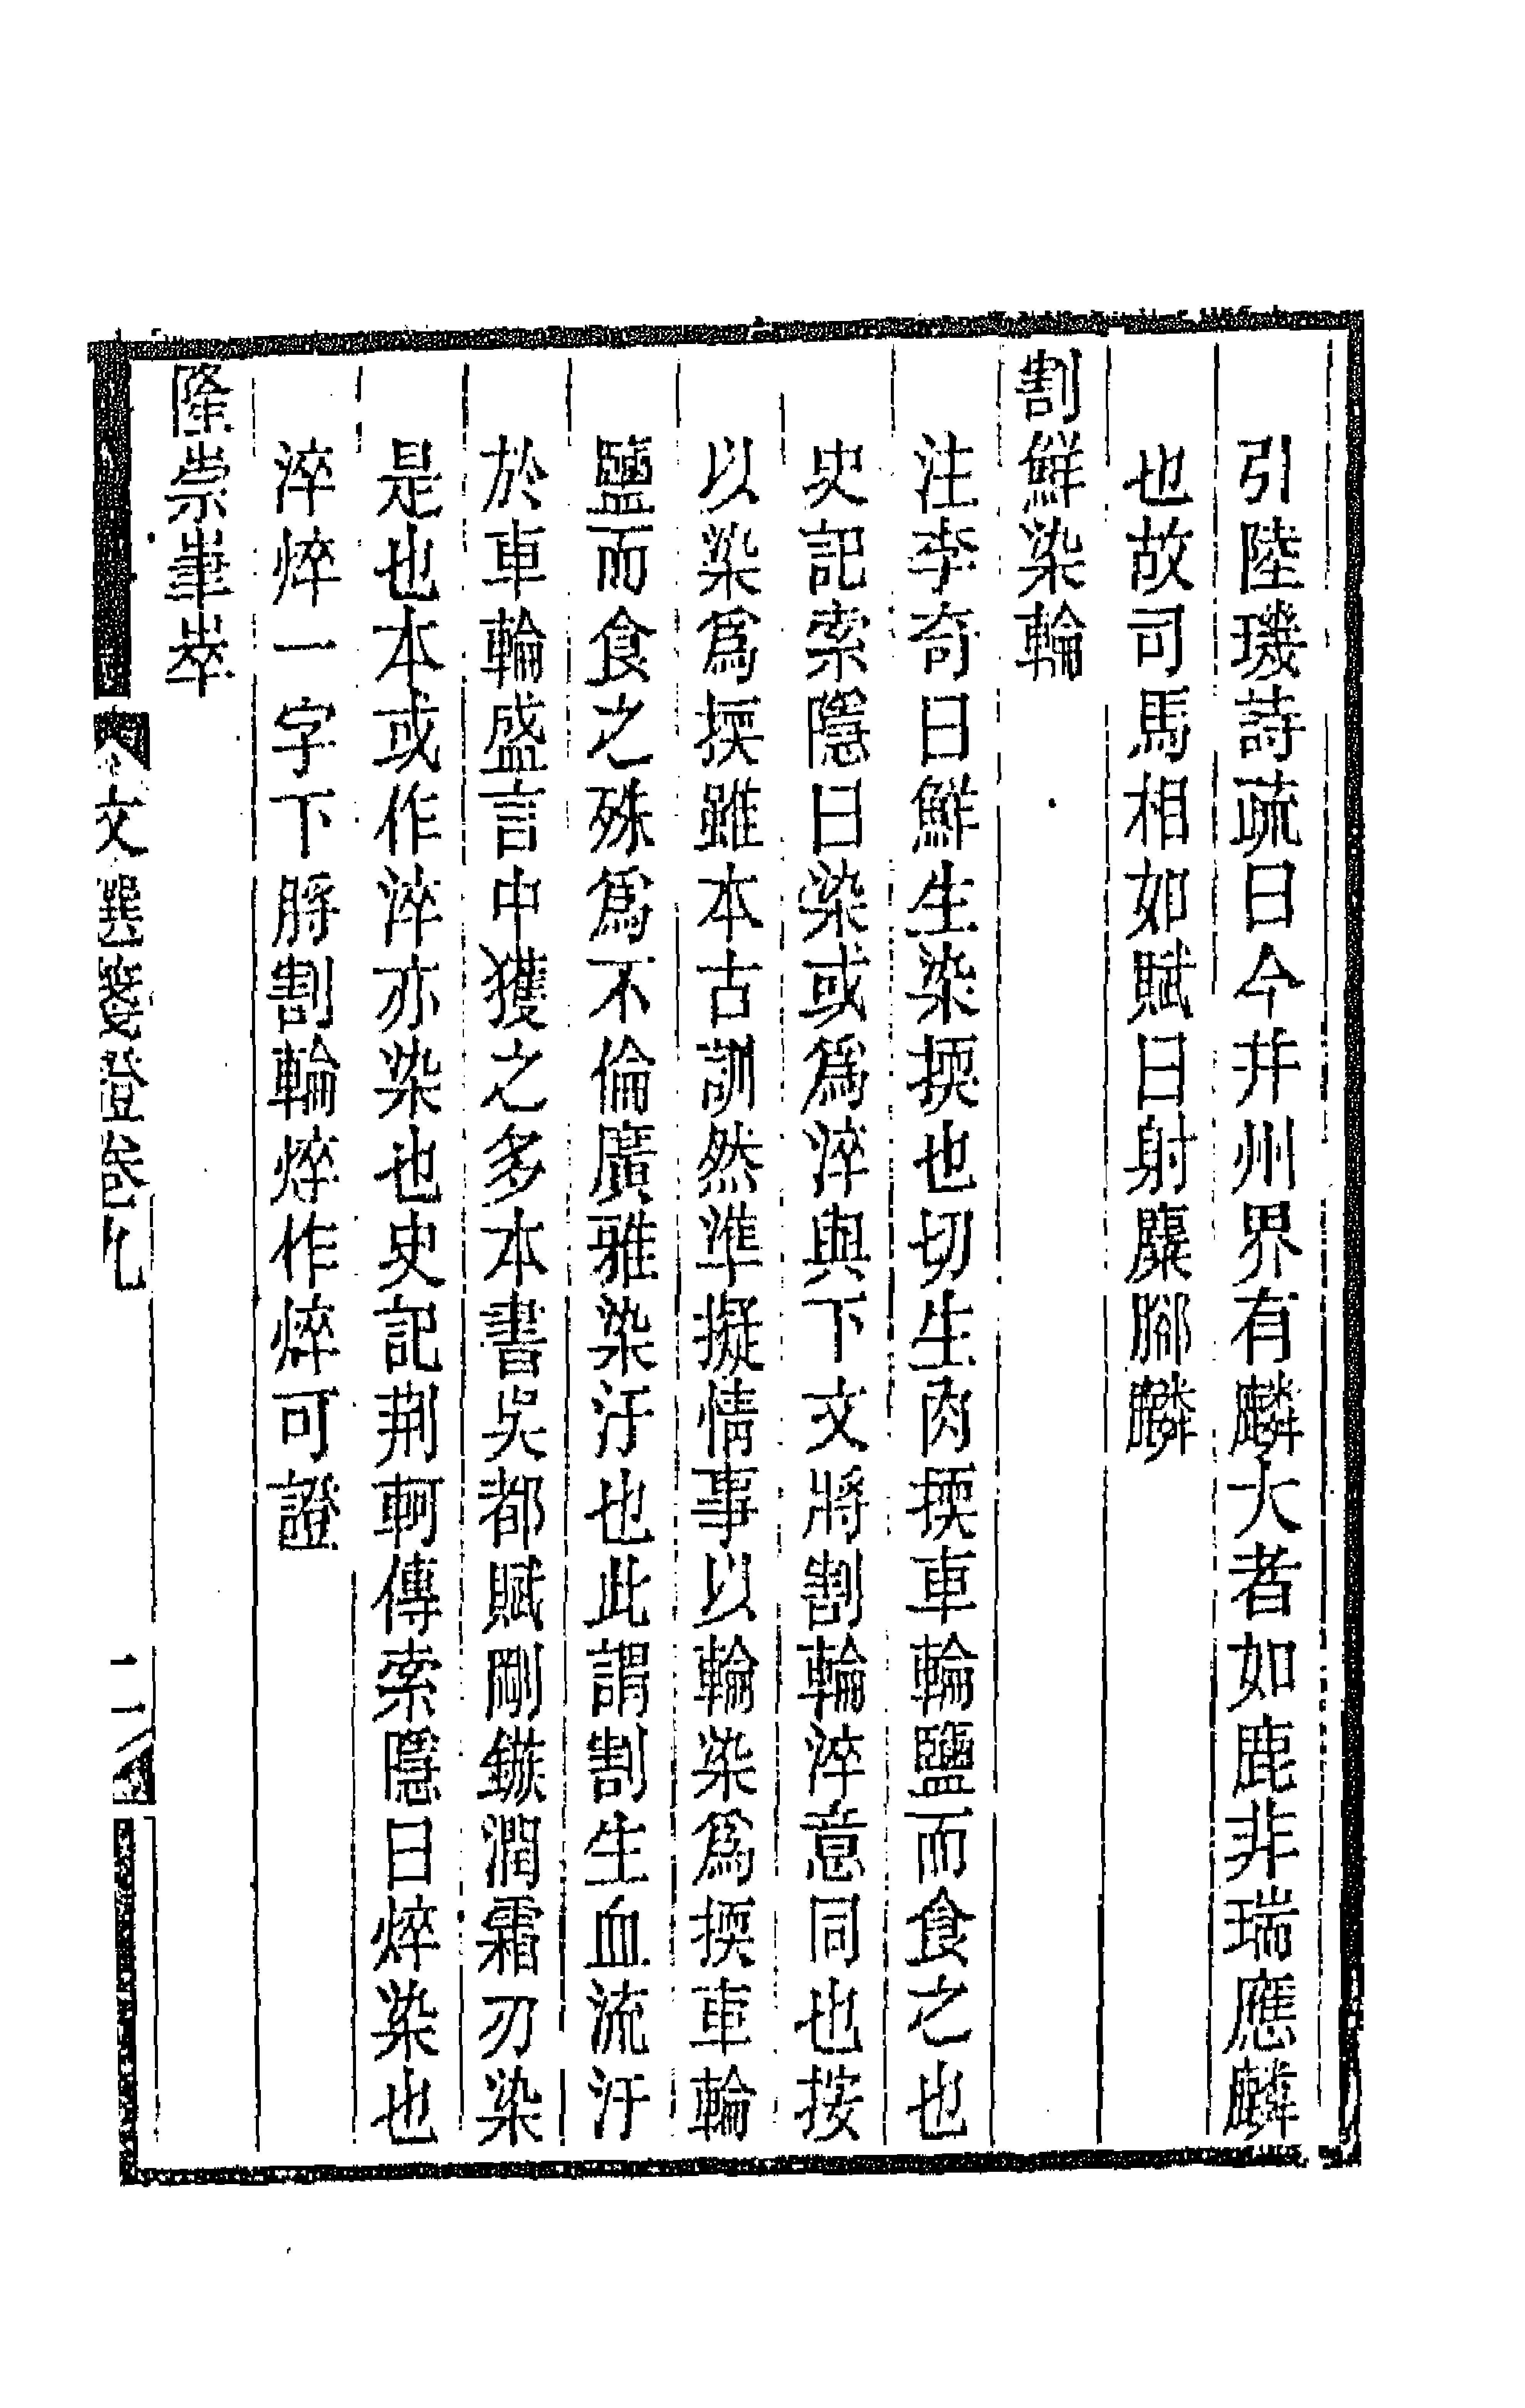 引陸璣詩疏曰今并州界有麟大者如鹿非瑞應麟
也故司馬相如賦曰射麋腳麟
割鮮染輪
注李奇曰鮮生染擩也切生肉擩車輪鹽而食之也
史記索隱曰染或爲淬與下文將割輪淬意同也按
以染爲擩雖本古訓然準擬情事以輪染爲擩車輪
鹽而食之殊爲不倫廣雅染汙也此謂割生血流汙
於車輪盛言中獲之多本書吳都賦剛鏃潤霜刃染
是也本或作淬亦染也史記荆軻傳索隱曰焠染也
淬焠一字下脟割輪焠作焠可證
隆崇嵂崒
文選箋證卷九
二